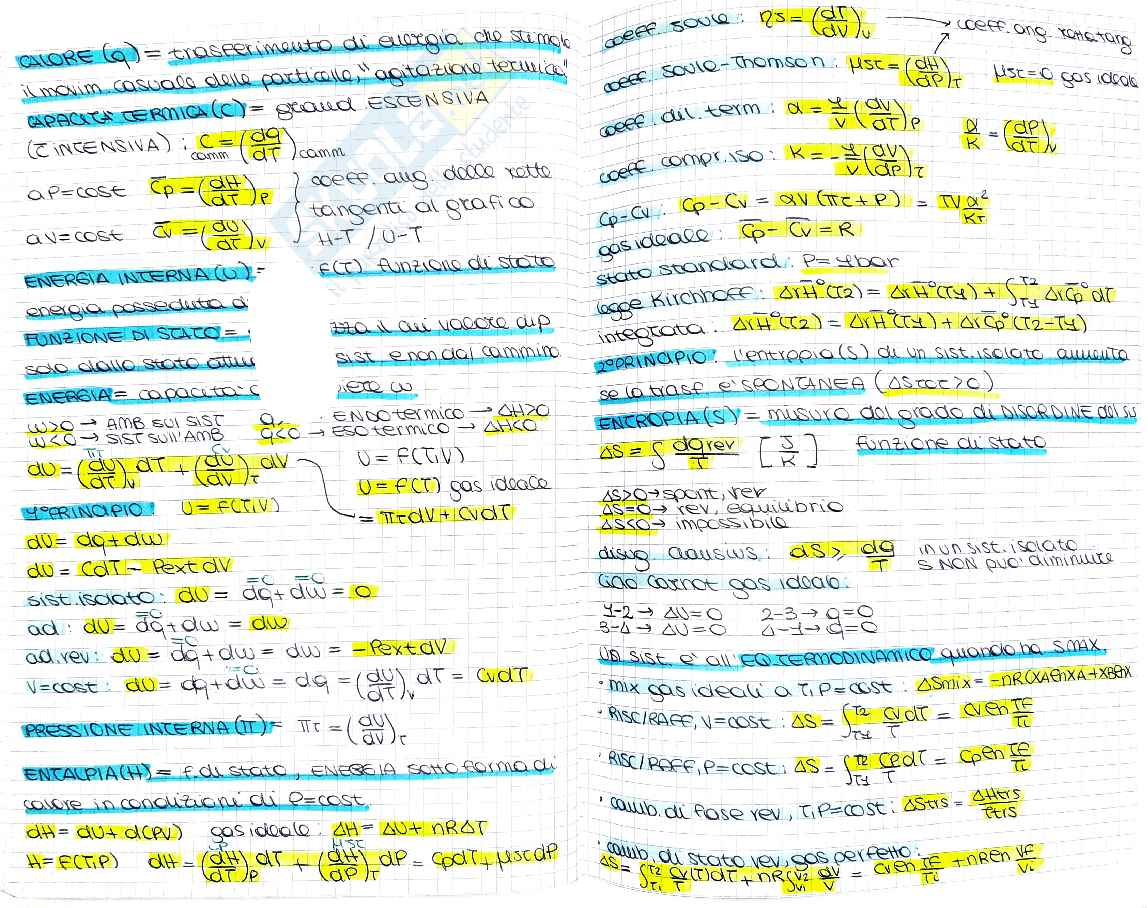 CALORE (q) = trasferimento di energia che stimola
il movim. casuale delle particelle, "agitazione termica"
CAPACITÀ TERMICA (C) = grand. ESTENSIVA
(C̅ INTENSIVA) : C camm = (dq/dT) camm
a P=cost C̅p = (dH/dT)P } coeff ang. delle rette
tangenti al grafico
a V=cost C̅v = (dU/dT)V H-T / U-T
ENERGIA INTERNA (U) = f(T). funzione di stato
energia posseduta d
FUNZIONE DI STATO = zza il cui valore dip
solo dallo stato attu sist. e non dal cammino
ENERGIA = capacità iere w
w>0 → AMB sul SIST q ENDOtermico → ΔH>0
w<0 → SIST sull'AMB q<0 → ESOtermico → ΔH<0
dU = (dU/dT)V dT + (dU/dV)T dV U = f(T,V)
U = f(T) gas ideale
= πT dV + Cv dT
1° PRINCIPIO: U = f(T,V)
dU = dq + dw
dU = CdT - Pext dV
sist. isolato: dU = dq + dw = 0
ad: dU = dq + dw = dw
ad. rev: dU = dq + dw = dw = -Pext dV
V=cost: dU = dq + dw = dq = (dU/dT)V dT = Cv dT
PRESSIONE INTERNA (π) = πT = (dU/dV)T
ENTALPIA (H) = f. di stato, ENERGIA sotto forma di
calore in condizioni di P=cost
dH = dU + d(PV) gas ideale: ΔH = ΔU + nRΔT
H = f(T,P) dH = (dH/dT)P dT + (dH/dP)T dP = Cp dT + μJT dP
coeff Joule: ηJ = (dT/dV)U → coeff. ang. retta tang
coeff Joule-Thomson: μJT = (dH/dP)T μJT = 0 gas ideale
coeff. dil. term: α = 1/V (dV/dT)P α/K = (dP/dT)V
coeff. compr. iso: K = -1/V (dV/dP)T
Cp-Cv: Cp - Cv = αV (πT + P) = TV α²/KT
gas ideale: C̅p - C̅v = R
stato standard: P = 1 bar
legge Kirchhoff: ΔrH̅°(T2) = ΔrH̅°(T1) + ∫T1 T2 ΔrC̅p° dT
integrata: ΔrH̅°(T2) = ΔrH̅°(T1) + ΔrC̅p° (T2-T1)
2° PRINCIPIO: l'entropia (S) di un sist. isolato aumenta
se la trasf. è SPONTANEA (ΔStot > 0)
ENTROPIA (S) = misura del grado di DISORDINE del sis
ΔS = ∫ dqrev/T [J/K] funzione di stato
ΔS>0 → spont, rev
ΔS=0 → rev, equilibrio
ΔS<0 → impossibile
disug Clausius: dS ≥ dq/T in un sist. isolato
S NON può diminuire
Ciclo Carnot gas ideale:
1-2 → ΔU=0 2-3 → q=0
3-4 → ΔU=0 4-1 → q=0
Un sist. è all'EQ. TERMODINAMICO quando ha S MAX.
• mix gas ideali a T,P=cost: ΔSmix = -nR(XA ln XA + XB ln X
• RISC/RAFF, V=cost: ΔS = ∫T1 T2 Cv/T dT = Cv ln Tf/Ti
• RISC/RAFF, P=cost: ΔS = ∫T1 T2 Cp/T dT = Cp ln Tf/Ti
• camb. di fase rev, T,P=cost: ΔStrs = ΔHtrs/Ttrs
• camb. di stato rev, gas perfetto:
ΔS = ∫T1 T2 Cv(T)/T dT + nR ∫V1 V2 dV/V = Cv ln Tf/Ti + nR ln Vf/Vi